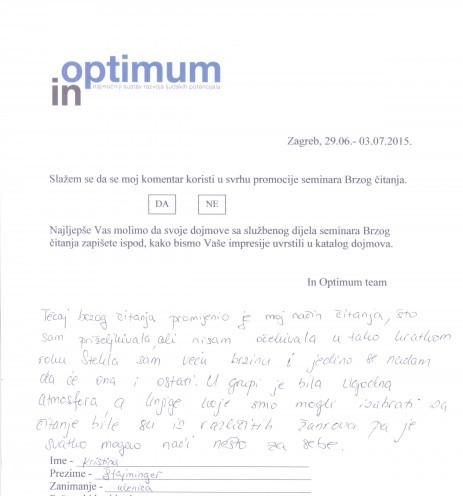 optimum
in
najmoćniji sustav razvoja ljudskih potencijala
Zagreb, 29.06.- 03.07.2015.
Slažem se da se moj komentar koristi u svrhu promocije seminara Brzog čitanja.
DA NE
Najljepše Vas molimo da svoje dojmove sa službenog dijela seminara Brzog
čitanja zapišete ispod, kako bismo Vaše impresije uvrstili u katalog dojmova.
In Optimum team
Tečaj brzog čitanja promijenio je moj način čitanja, što
sam priželjkivala, ali nisam očekivala u tako kratkom
roku. Stekla sam veću brzinu i jedino se nadam
da će ona i ostati. U grupi je bila ugodna
atmosfera a knjige koje smo mogli izabrati za
čitanje bile su iz različitih žanrova pa je
svatko mogao naći nešto za sebe.
Ime - Kristina
Prezime - Štajminger
Zanimanje - učenica